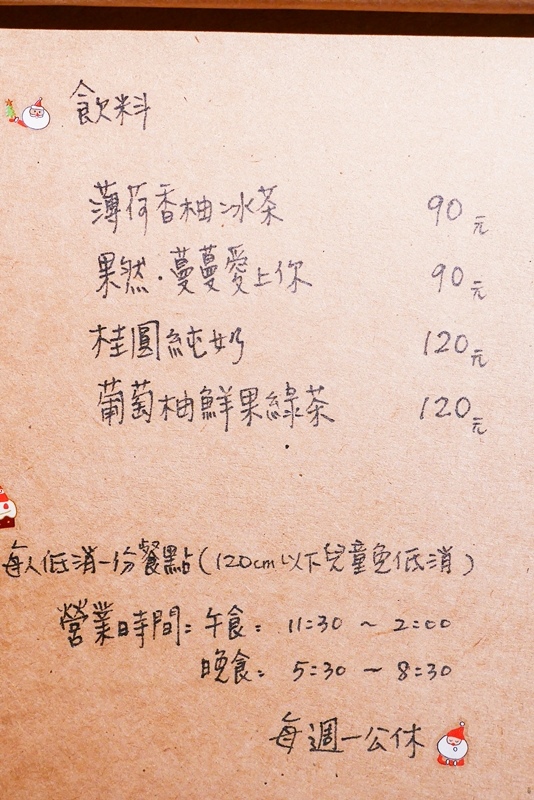 飲料
薄荷香柚冰茶 90元
果然·蔓蔓愛上你 90元
桂圓純奶 120元
葡萄柚鮮果綠茶 120元
每人低消一份餐點(120cm以下兒童免低消)
營業時間:午食: 11:30 ~ 2:00
晚食: 5:30 ~ 8:30
每週一公休